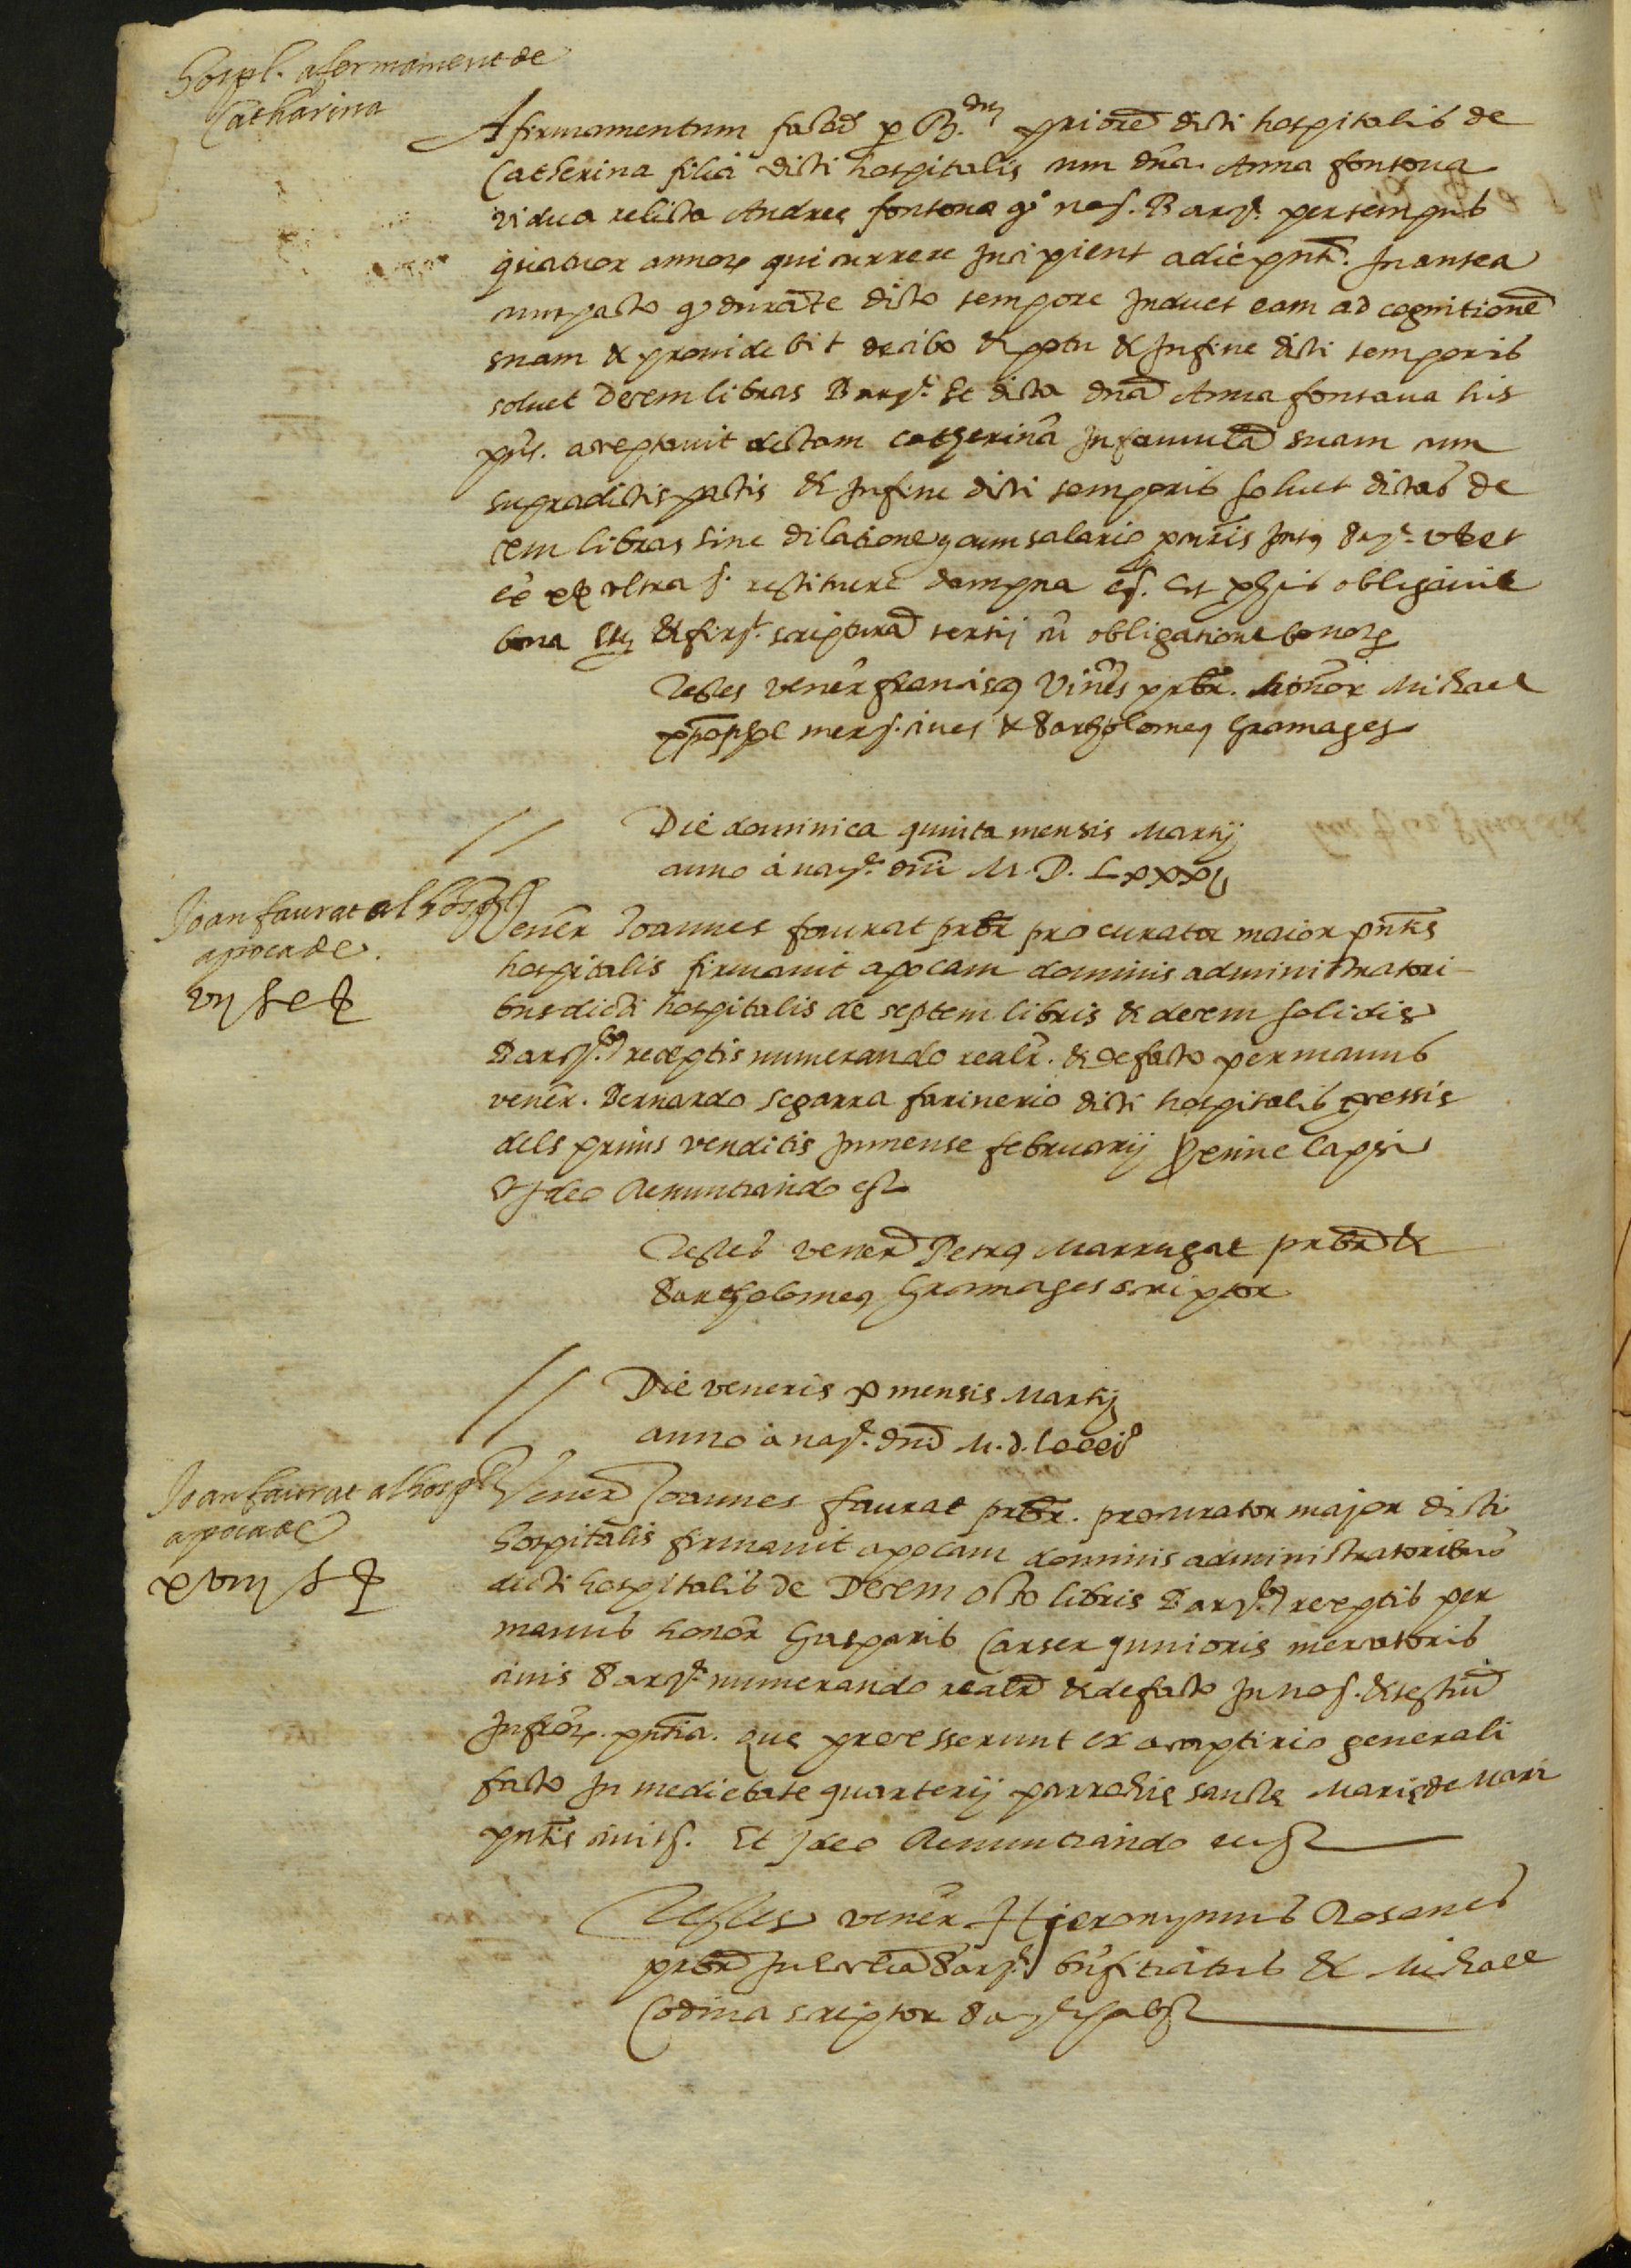 Hospl. afermament de
Catharina
Afirmamentum factū per R.dum priorē dicti hospitalis de
Catherina filia dicti hospitalis cum dn̄a. Anna fontona
vidua relicta Andreę fontona qº not. Barcᵉ. per tempus
quatuor annoꝝ qui currere Incipient a die pn̄ti. In antea
cum pacto qᵒ durāte dicto tempore Induet eam ad cognitionē
suam & prouidebit de cibo & potu & In fine dicti temporis
soluet Decem libras Barcᵉ. Et dicta dn̄a Anna fontana his
pn̄s. acceptauit dictam catherinā In famulā suam cum
supradictis pactis & In fine dicti temporis soluet dictas de
cem libras sine dilatione cum salario pn̄ris Intꝰ Barᵉ. v et
ex vltra s. restituere dampna ec. Et pro his obligauit
bona sua & fir. scripturā tertij cū obligatione bonoꝝ
Testes venēr franciscꝰ Vines prbr. honōr Michael
merc. ciues & Bartholomeꝰ Gramages
Die dominica quinta mensis Martij
anno à natᵉ. dn̄i M. D. Lxxxj
Joan faurat al hospl
apoca de.
vij ℔ x ẞ
Venēr Joannes faurat prbr procurator maior pn̄tis
hospitalis firmauit apocam dominis administratori-
bus dicti hospitalis de septem libris & decem solidis
Barcᵉ. receptis numerando realr. & de facto per manus
venēr. Bernardo Segarra farinerio dicti hospitalis pressis
dels prims venditis In mense februarij Penine lapsi
Et Ideo Renuntiando ec
Testes venēr Petrꝰ Marrugat prbr &
Bartholomeꝰ Gramages scriptor
Die veneris x mensis Martij
anno à natᵉ. dn̄i M. d. lxxxiº
Joan faurat al hospl
apoca de
xviij ℔ ẞ
Venēr Joannes faurat prbr. procurator major dicti
hospitalis firmauit apocam dominis administratoribus
dicti hospitalis de Decem octo libris Barcᵉ. receptis per
manus honōr Gasparis Carser junioris mercatoris
ciuis Barcᵉ. numerando realr & de facto In not. & testiū
Infroꝝ. pn̄tia. que processerunt ex acaptirio generali
facto In medietate quarterij parrochię sanctę Marię de Mari
pn̄tis ciuit. Et Ideo Renuntiando ec
Testes venēr Hieronymus Rosanes
prbr In Barᵉ. bn̄fitiatus & Michael
Codina scriptor Bar